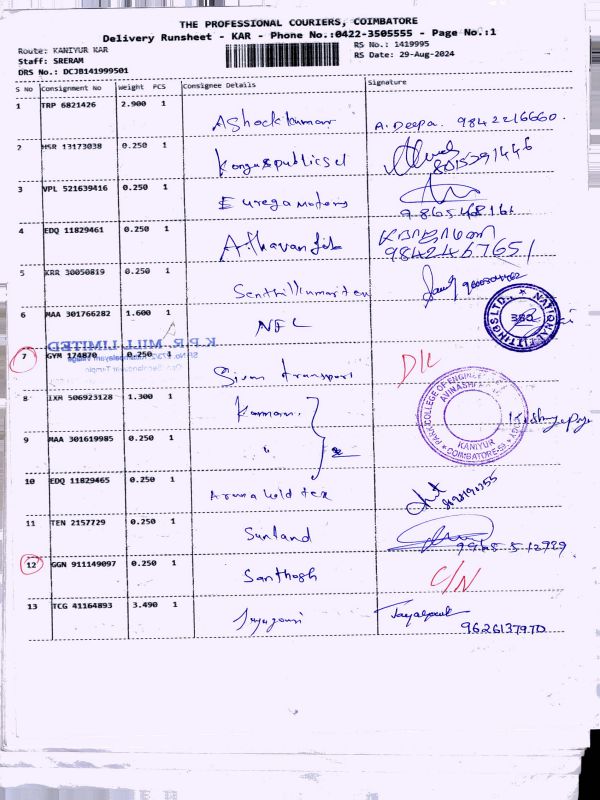 THE PROFESSIONAL COURIERS, COIMBATORE
Delivery Runsheet - KAR - Phone No.:0422-3505555 - Page No.:1
Route: KANIYUR KAR
RS No.: 1419995
Staff: SRERAM
RS Date: 29-Aug-2024
DRS No.: DCJB141999501
S No Consignment No Weight PCS Consignee Details Signature
1 TRP 6821426 2.900 1 Ashock kumar A. Deepa. 9842216660.
2 MSR 13173038 0.250 1 8015391446
3 VPL 521639416 0.250 1 Eurega motors
4 EDQ 11829461 0.250 1 Athavan fab 9842467651
5 KRR 30050819 0.250 1 Senthilkumar tex
6 MAA 301766282 1.600 1 NFL
NATIONAL FITTINGS LTD., 350
K.P.R. MILL LIMITED
7 GYM 174870 0.250 1 Sivam transport D/L
8 IXM 506923128 1.300 1
PARK COLLEGE OF ENGINEE
KANIYUR
COIMBATORE-59
9 MAA 301619985 0.250 1 "
10 EDQ 11829465 0.250 1
11 TEN 2157729 0.250 1 Sunland
12 GGN 911149097 0.250 1 Santhosh C/N
13 TCG 41164893 3.490 1 Jayagowri 9626137970